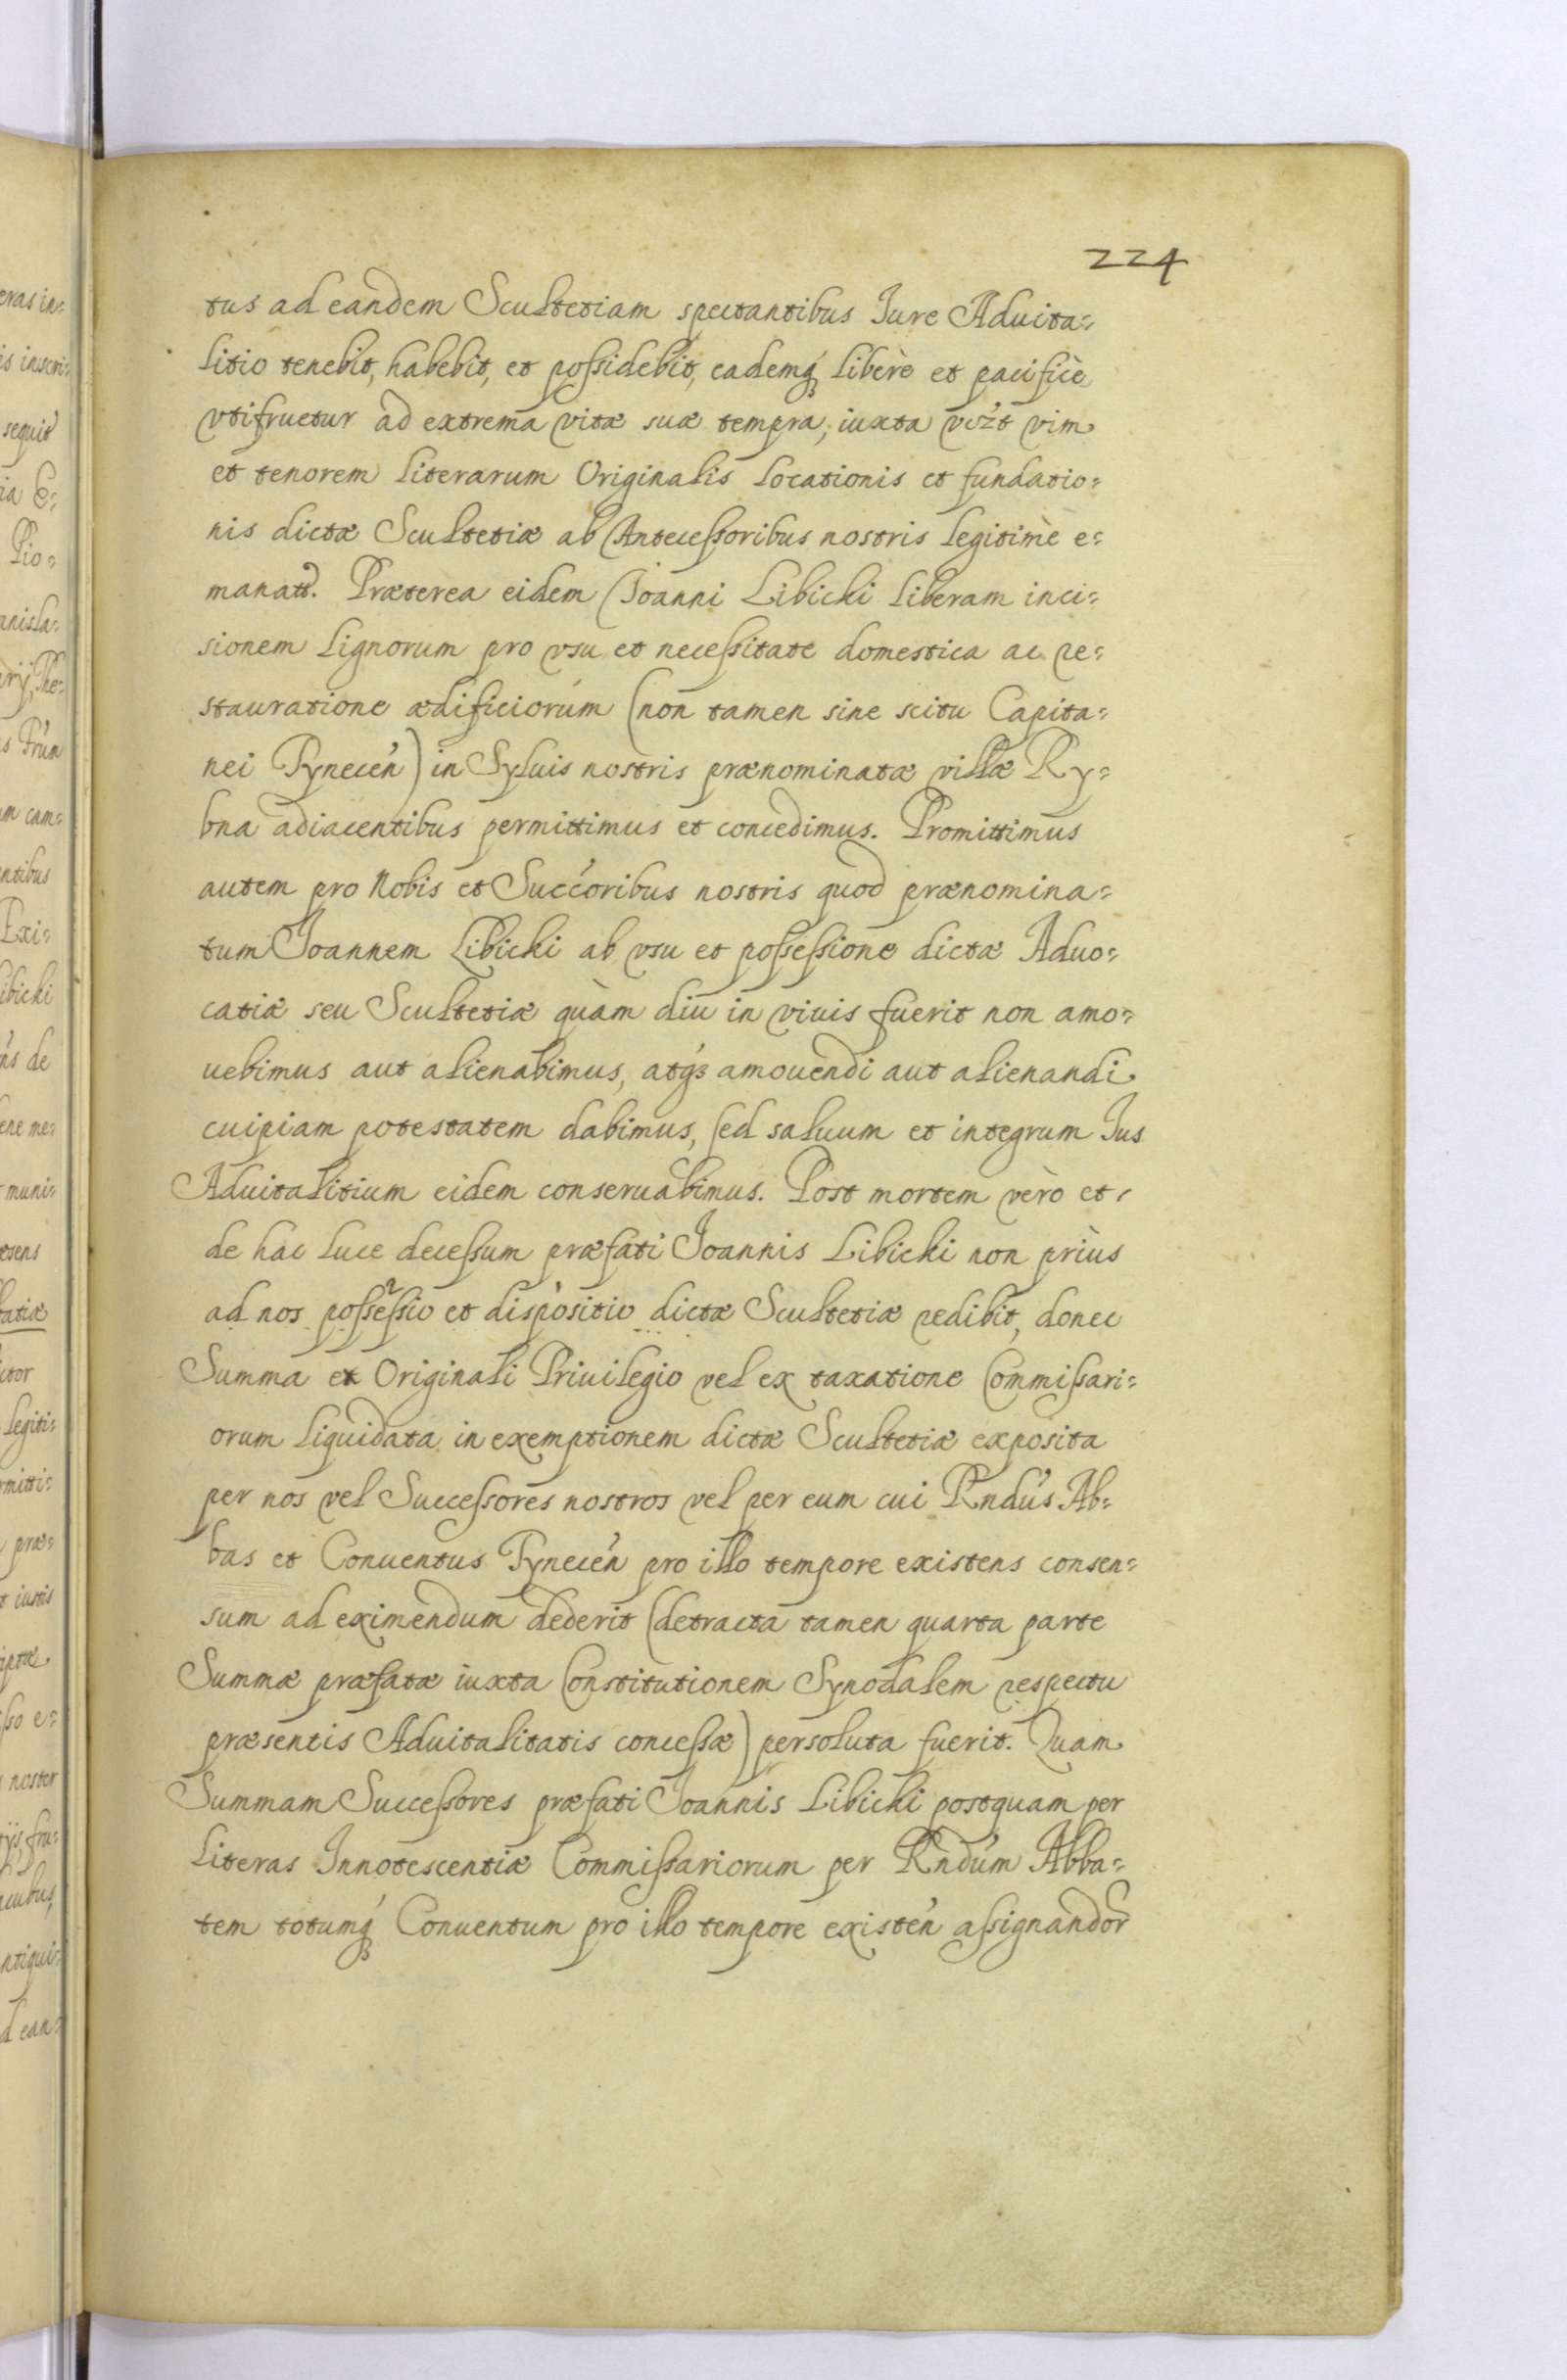 224
tus ad eandem Scultetiam spectantibus Iure Aduita=
litio tenebit, habebit, et possidebit, eademq́ʒ liberè et pacificè
vtifruetur ad extrema vitæ suæ tempra, iuxta vízt vim
et tenorem literarum Originalis locationis et fundatio=
nis dictæ Scultetiæ ab Antecessoribus nostris legitimè e=
manatt. Præterea eidem Ioanni Libicki liberam inci=
sionem lignorum pro vsu et necessitate domestica ac re=
stauratione ædificiorum (non tamen sine scitu Capita=
nei Tynecéń) in Syluis nostris prænominatæ villæ Ry=
bna adiacentibus permittimus et concedimus. Promittimus
autem pro Nobis et Succ̓oribus nostris quod prænomina=
tum Ioannem Libicki ab vsu et possessione dictæ Aduo=
catiæ seu Scultetiæ quàm diu in viuis fuerit non amo=
uebimus aut alienabimus, atq́ʒ amouendi aut alienandi
cuipiam potestatem dabimus, sed saluum et integrum Ius
Aduitalitium eidem conseruabimus. Post mortem verò et
de hac luce decessum præfati Ioannis Libicki non priùs
ad nos possessio et dispositio dictæ Scultetiæ redibit, donec
Summa ex Originali Priuilegio vel ex taxatione Commissari=
orum liquidata in exemptionem dictæ Scultetiæ exposita
per nos vel Successores nostros vel per eum cui Rndús Ab=
bas et Conuentus Tynecéń pro illo tempore existens consen=
sum ad eximendum dederit (detracta tamen quarta parte
Summæ præfatæ iuxta Constitutionem Synodalem respectu
præsentis Aduitalitatis concessæ) persoluta fuerit. Quam
Summam Successores præfati Ioannis Libicki postquam per
literas Innotescentiæ Commissariorum per Rndúm Abba=
tem totumq́ʒ Conuentum pro illo tempore existéń assignandor